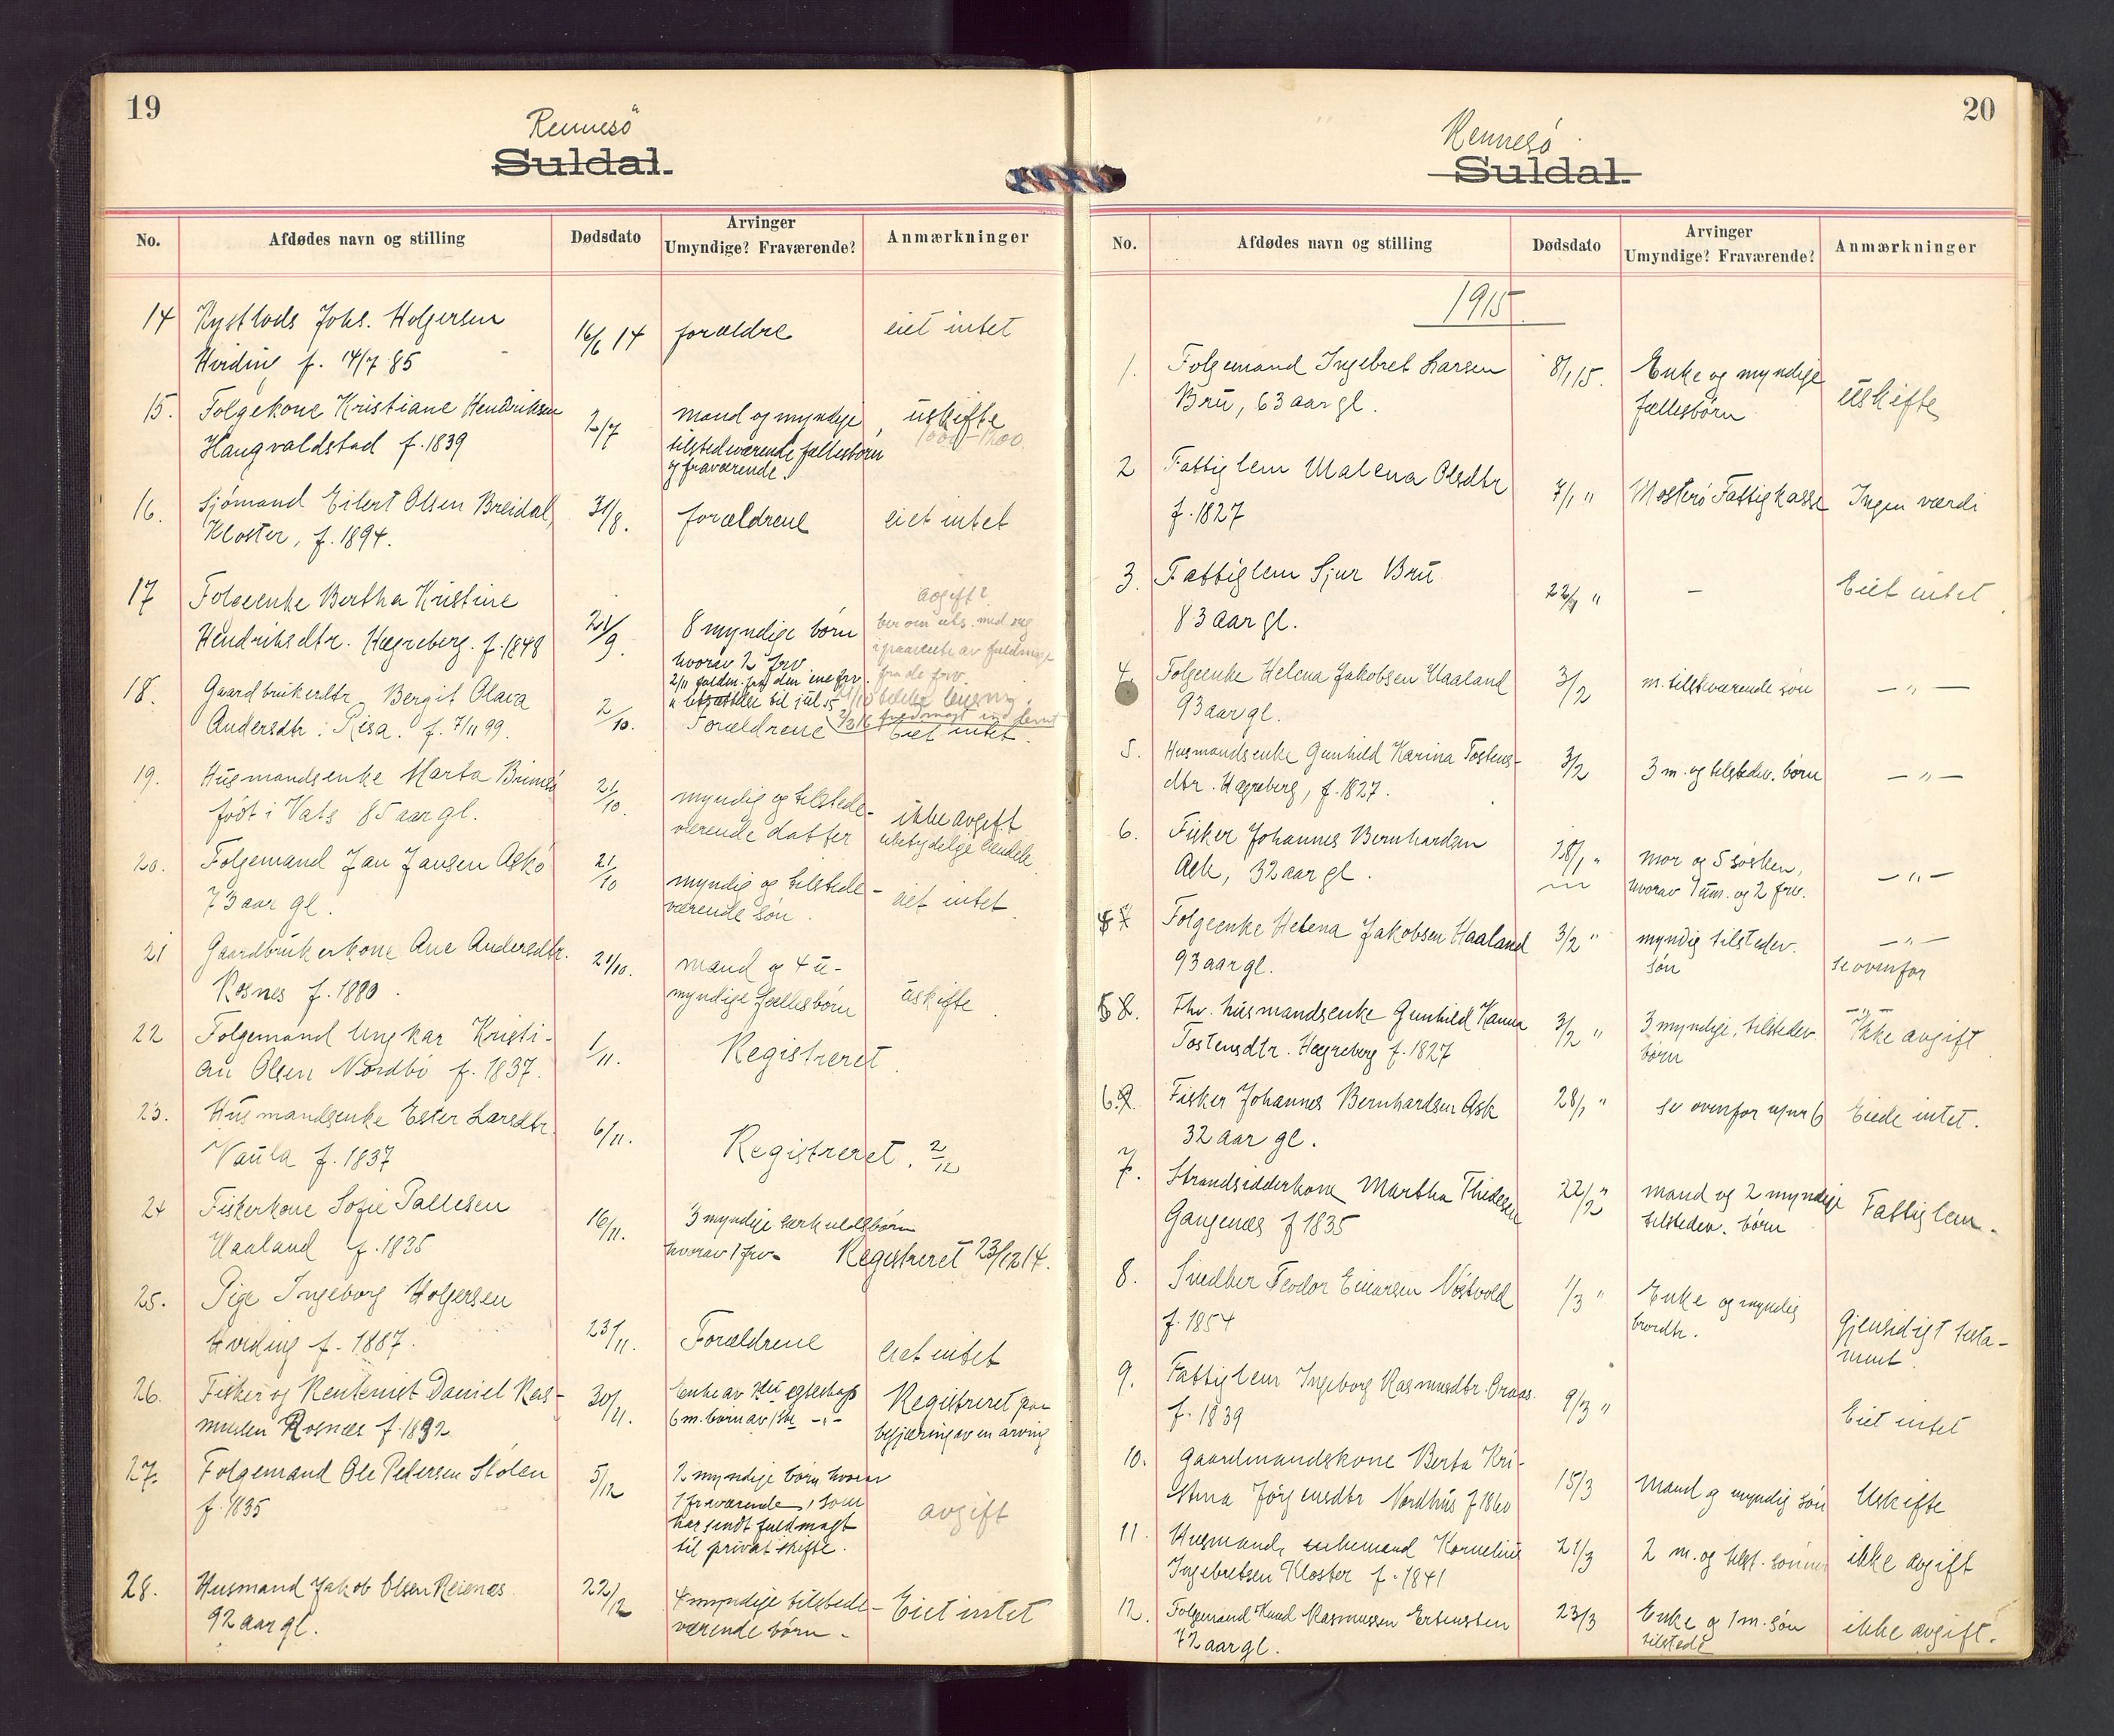 19
Rennesö
Suldal.
No. Afdødes navn og stilling Dødsdato Arvinger Umyndige? Fraværende? Anmærkninger
14 Kystlods Johs. Holgersen 16/6 14 forældre eiet intet
Hviding f. 14/7 85
15. Folgekone Kristiane Hendriksen 2/7 mand og myndige uskifte
Haugvaldstad f. 1839 tilstedeværende fællesbørn 1000-1200
og fraværende.
16. Sjömand Eilert Olsen Breidal, 31/8. forældrene eiet intet
Kloster, f. 1894.
17 Folgeenke Bertha Kristine 21/9. 8 myndige børn avgift?
Hendriksdtr. Hægreberg. f. 1848 hvorav 2 frv.
fra de frv.
18. Gaardbrukerdtr Bergit Olava 2/10. Forældrene Eiet intet.
Andersdtr. Risa. f. 7/11 99.
19. Husmandsenke Marta Brimsö 21/10. myndig og tilstede- ikke avgift
födt i Vats 85 aar gl. værende datter ubetydelige
20. Folgemand Jan Jansen Askö 21/10 myndig og tilstede- eiet intet.
73 aar gl. værende søn.
21 Gaardbrukerkone Ane Andersdtr. 21/10. mand og 4 u- uskifte
Rosnes f. 1880. myndige fællesbørn
22 Folgemand Ungkar Kristi- 1/11. Registreret.
an Olsen Nordbö f. 1837.
23. Husmandsenke Ester Larsdtr. 6/11. Registreret. 2/12
Vaula f. 1837
24 Fiskerkone Sofie Pallesen 16/11. 3 myndige særkuldsbørn
Haaland f. 1835 hvorav 1 frv. Registreret 23/12 14.
25. Pige Ingeborg Holgersen 23/11. Forældrene eiet intet
Hviding f. 1887.
26. Fisker og Rentenist Daniel Ras- 30/11. Enke av egteskap Registreret paa
mussen Rosnæs f. 1832 6 m. börn av 1ste -"- begjæring av en arving
27. Folgemand Ole Pedersen Stölen 5/12 2 myndige børn hvorav avgift
f. 1835 1 fraværende, som
har sendt fuldmagt
til privat skifte.
28. Husmand Jakob Olsen Reienæs 22/12 4 myndige tilstede- Eiet intet
92 aar gl. værende børn.
20
Rennesö
Suldal.
No. Afdødes navn og stilling Dødsdato Arvinger Umyndige? Fraværende? Anmærkninger
1915.
1. Folgemand Ingebret Larsen 8/1 15. Enke og myndige uskifte
Bru, 63 aar gl. fællesbørn
2 Fattiglem Malena Olsdtr 7/1 " Mosterö Fattigkasse Ingen værdi
f. 1827
3. Fattiglem Sjur Bru 22/1 " - Eiet intet.
83 aar gl.
4. Folgeenke Helena Jakobsen Haaland 3/2 m. tilstværende søn -"-
93 aar gl.
5. Husmandsenke Gunhild Karina Tostens- 3/2 3 m. og tilstedev. børn -"-
dtr. Hægreberg, f. 1827.
6. Fisker Johannes Bernhardsen 28/1 " mor og 5 søsken, -"-
Ask, 32 aar gl. hvorav 1 um. og 2 frv.
4 7 Folgeenke Helena Jakobsen Haaland 3/2 " myndig tilstedev. -"-
93 aar gl. søn se ovenfor
5 8. Fhv. husmandsenke Gunhild Karina 3/2 " 3 myndige, tilstedev -"-
Tostensdtr. Hægreberg f. 1827 børn Ikke avgift.
6. 9. Fisker Johannes Bernhardsen Ask 28/1 " se ovenfor u/nr 6 Eiede intet.
32 aar gl.
7. Strandsidderkone Martha Thidesen 22/2 " mand og 2 myndige Fattiglem.
Gangenæs f 1835 tilstedev. børn
8. Snedker Teodor Einarsen Nöstvold 1/3 " Enke og myndig Gjensidigt testa-
f. 1854 ment.
9. Fattiglem Ingeborg Rasmusdtr. 9/3 " Eiet intet
f. 1839
10. Gaardmandskone Berta Kri- 15/3 Mand og myndig søn Uskifte
stina Jörgensdtr Nordhus f 1860
11. Husmand, enkemand Kornelius 21/3 2 m. og tilst. sønner ikke avgift
Ingebretsen Kloster f. 1841
12. Folgemand Knud Rasmussen Ertensten 23/3 Enke og 1 m. søn ikke avgift.
72 aar gl. tilstede